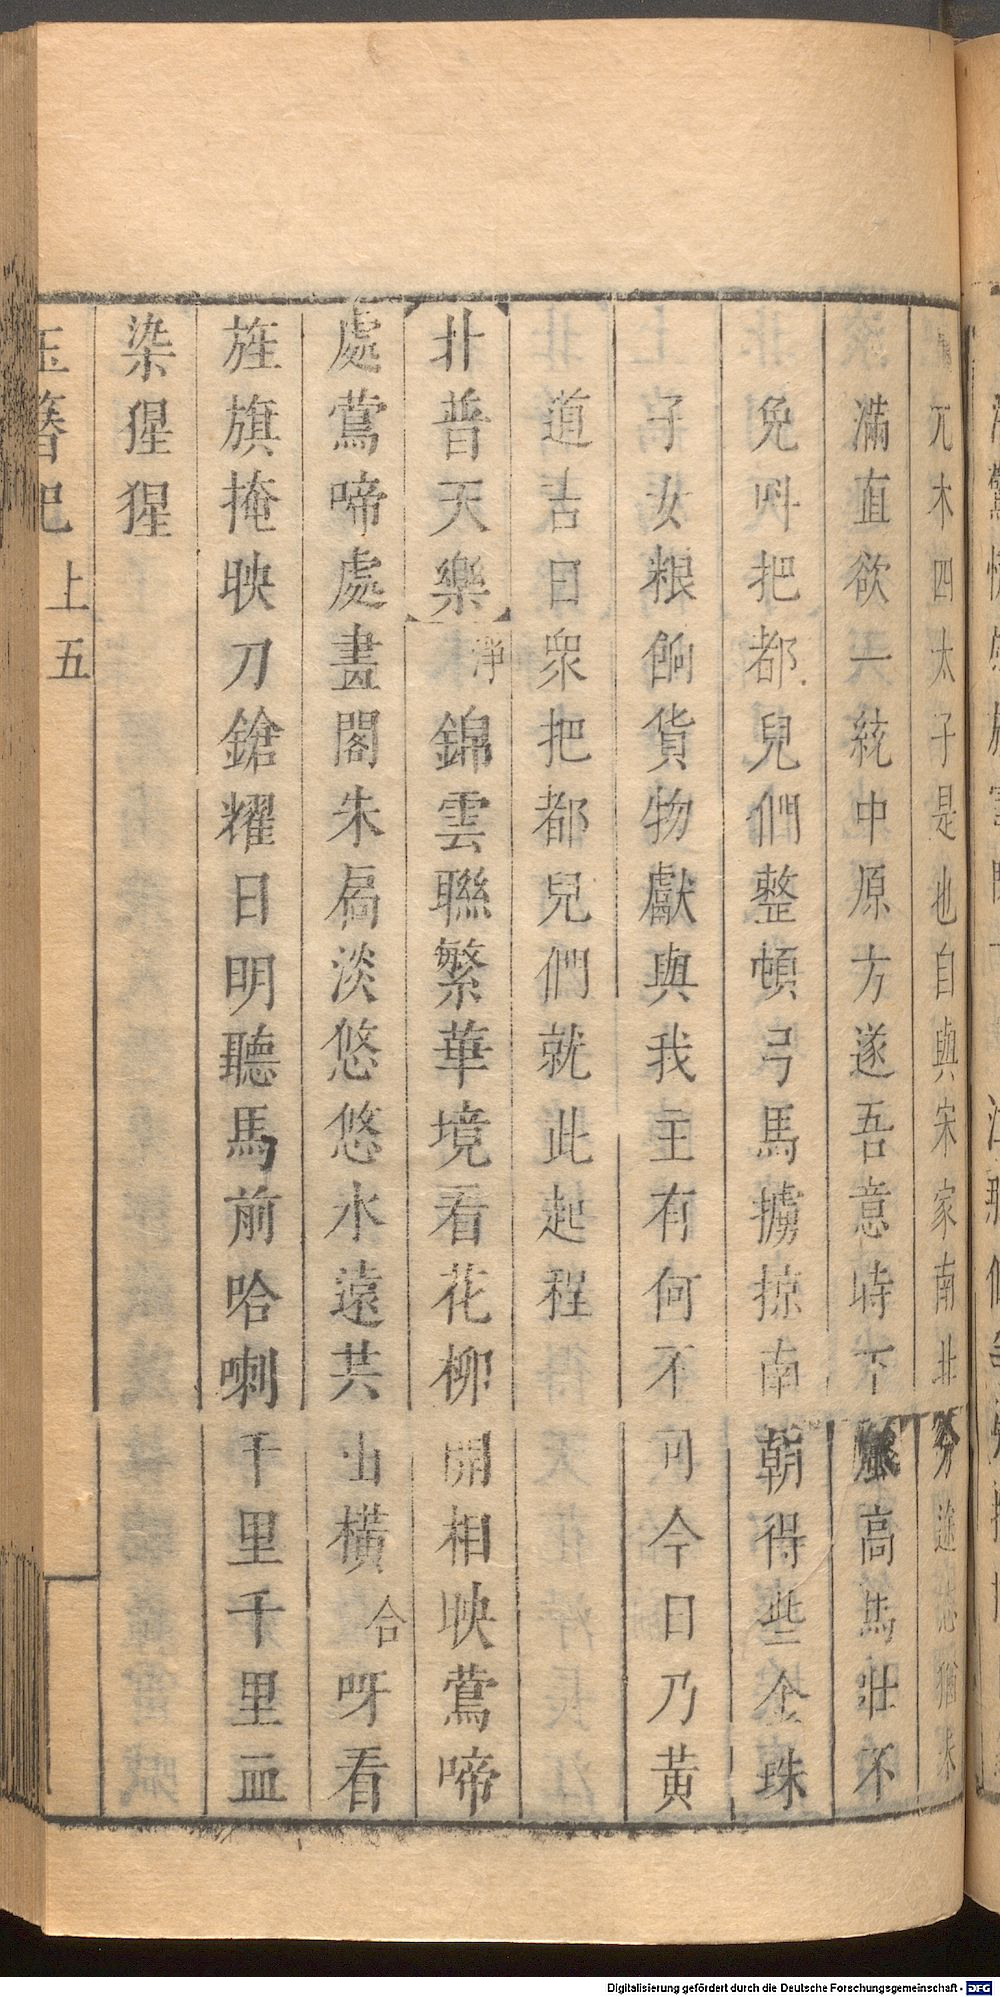 兀木四太子是也自與宋家南北分途志猶未
滿直欲一統中原方遂吾意時下風高馬壯不
免呌把都兒們整頓弓馬擄掠南朝得些金珠
子女粮餉貨物獻與我主有何不可今日乃黃
道吉日衆把都兒們就此起程
北普天樂 淨 錦雲聯繁華境看花柳開相映鶯啼
處鶯啼處畫閣朱扄淡悠悠水遠共山橫 合 呀看
旌旗掩映刀鎗耀日明聽馬前哈喇千里千里血
染猩猩
玉簪記 上 五
Digitalisierung gefördert durch die Deutsche Forschungsgemeinschaft - DFG